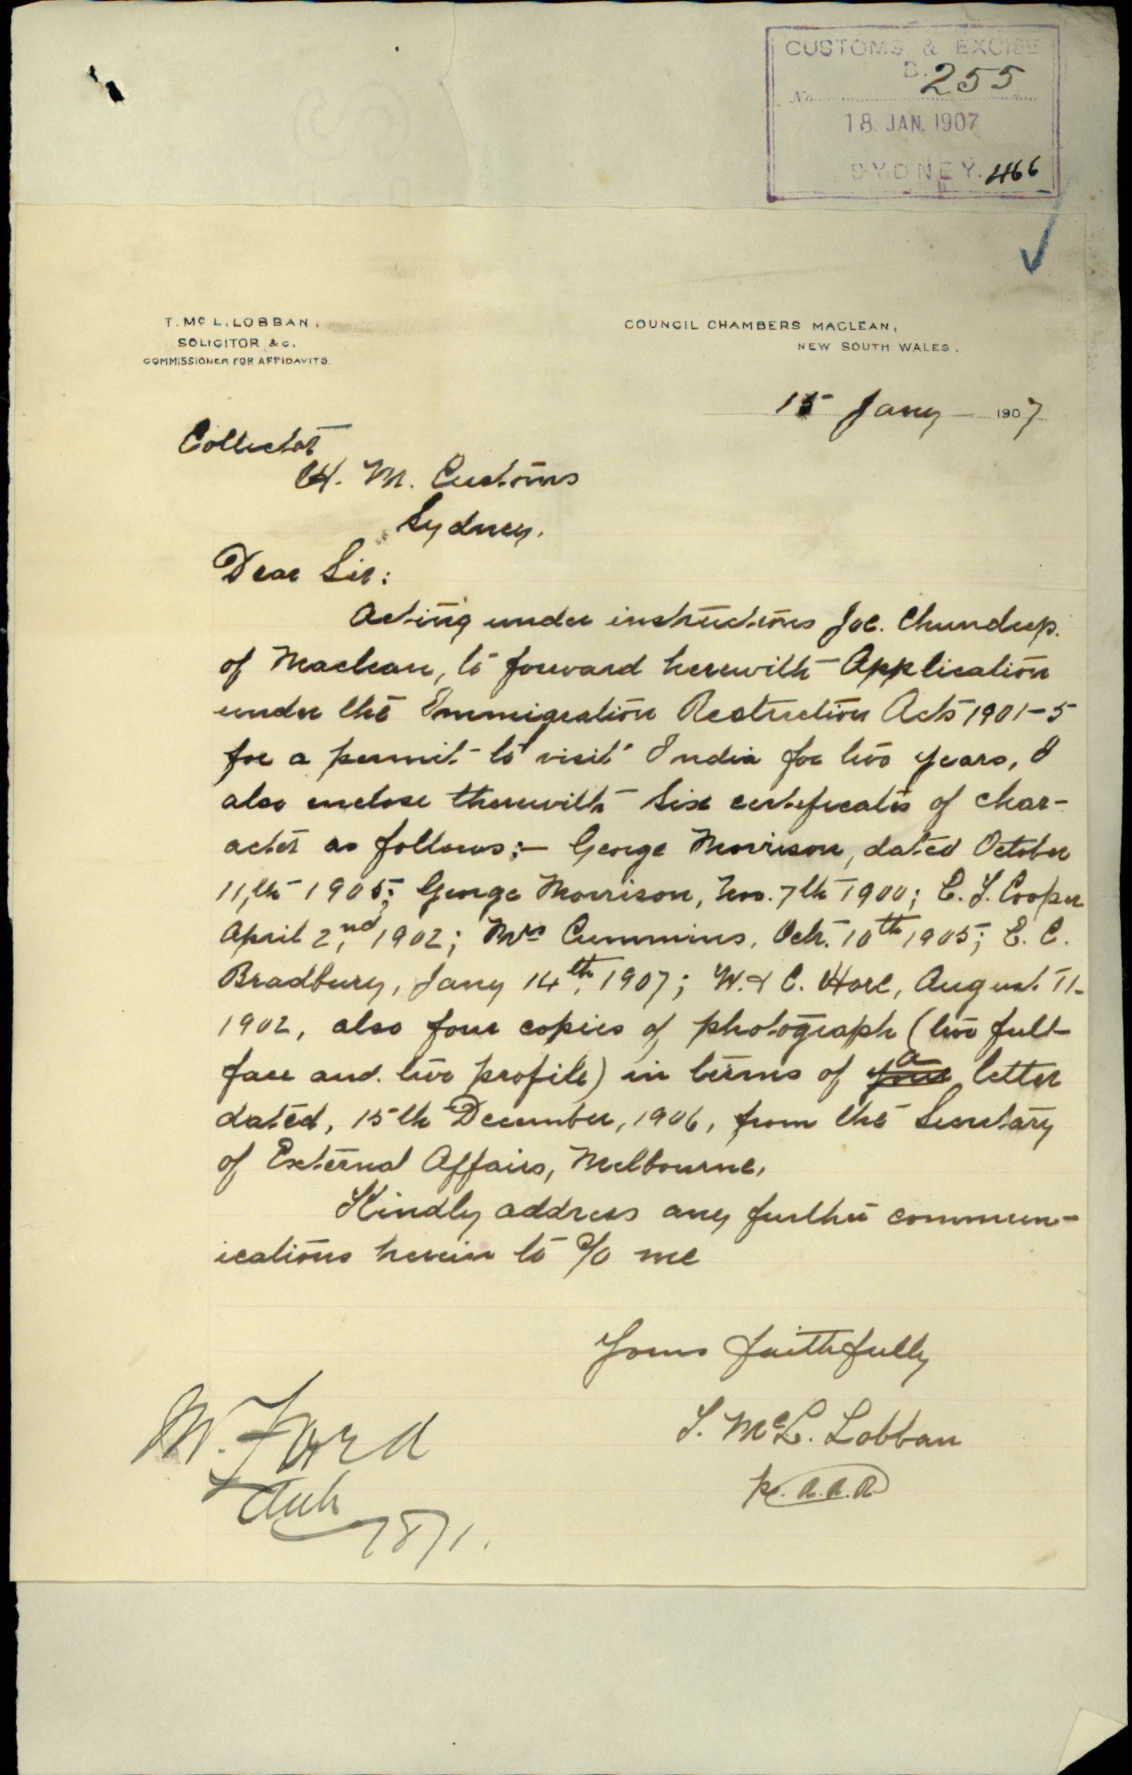 CUSTOMS & EXCISE
B.
No. 255
18. JAN. 1907
SYDNEY. 466
T. Mc L. LOBBAN,
SOLICITOR &c.
COMMISSIONER FOR AFFIDAVITS.
COUNCIL CHAMBERS MACLEAN,
NEW SOUTH WALES.
15 Jany 1907
Collector
H. M. Customs
Sydney.
Dear Sir:
Acting under instructions Joe. Chundeep.
of Maclean, to forward herewith Application
under the Immigration Restriction Acts 1901-5
for a permit to visit India for two years, I
also enclose therewith Six certificates of char-
acter as follows:- George Morrison, dated October
11th 1905; George Morrison, Nov. 7th 1900; C. J. Cooper
April 2nd, 1902; Mrs Cummins, Octr. 10th 1905; E. C.
Bradbury, Jany 14th, 1907; W. & C. Hore, August 11-
1902, also four copies of photograph (two full
face and two profile) in terms of your a letter
dated, 15th December, 1906, from the Secretary
of External Affairs, Melbourne.
Kindly address any further commun-
ications herein to c/o me
Yours faithfully
T. McL. Lobban
M. Ford